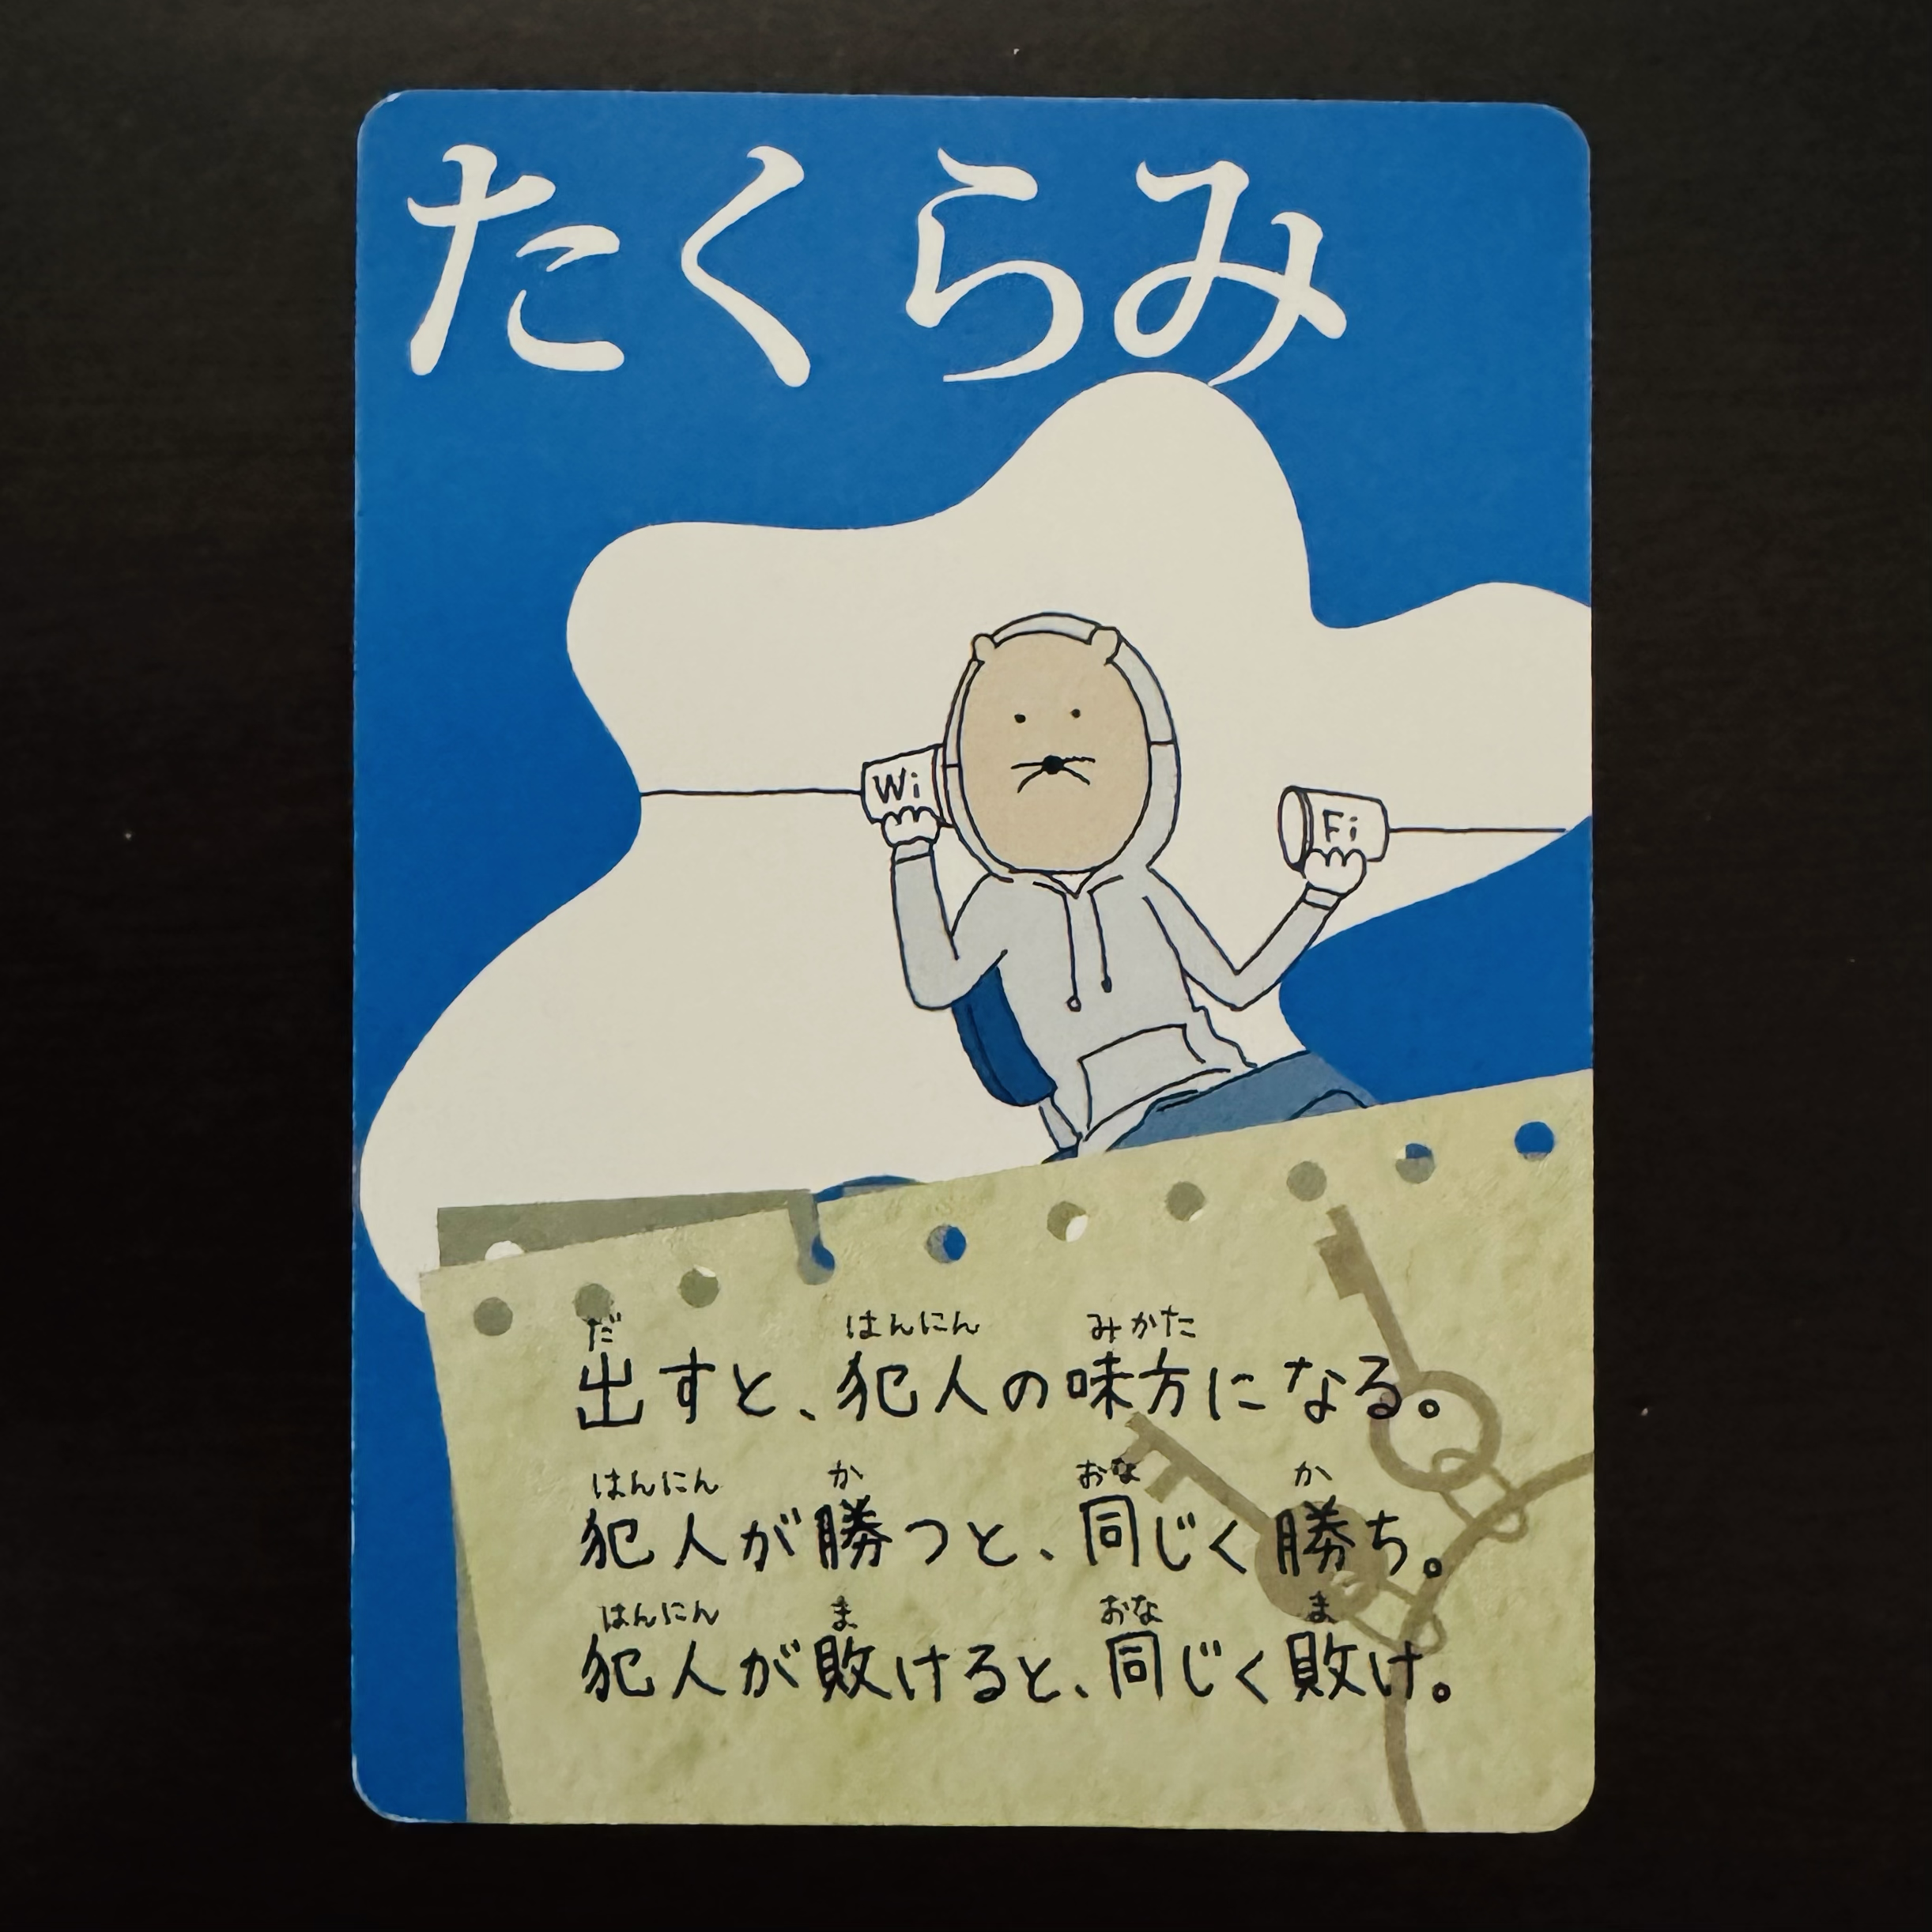 たくらみ
Wi
Fi
だ はんにん みかた
出すと、犯人の味方になる。
はんにん か おな か
犯人が勝つと、同じく勝ち。
はんにん ま おな ま
犯人が敗けると、同じく敗け。